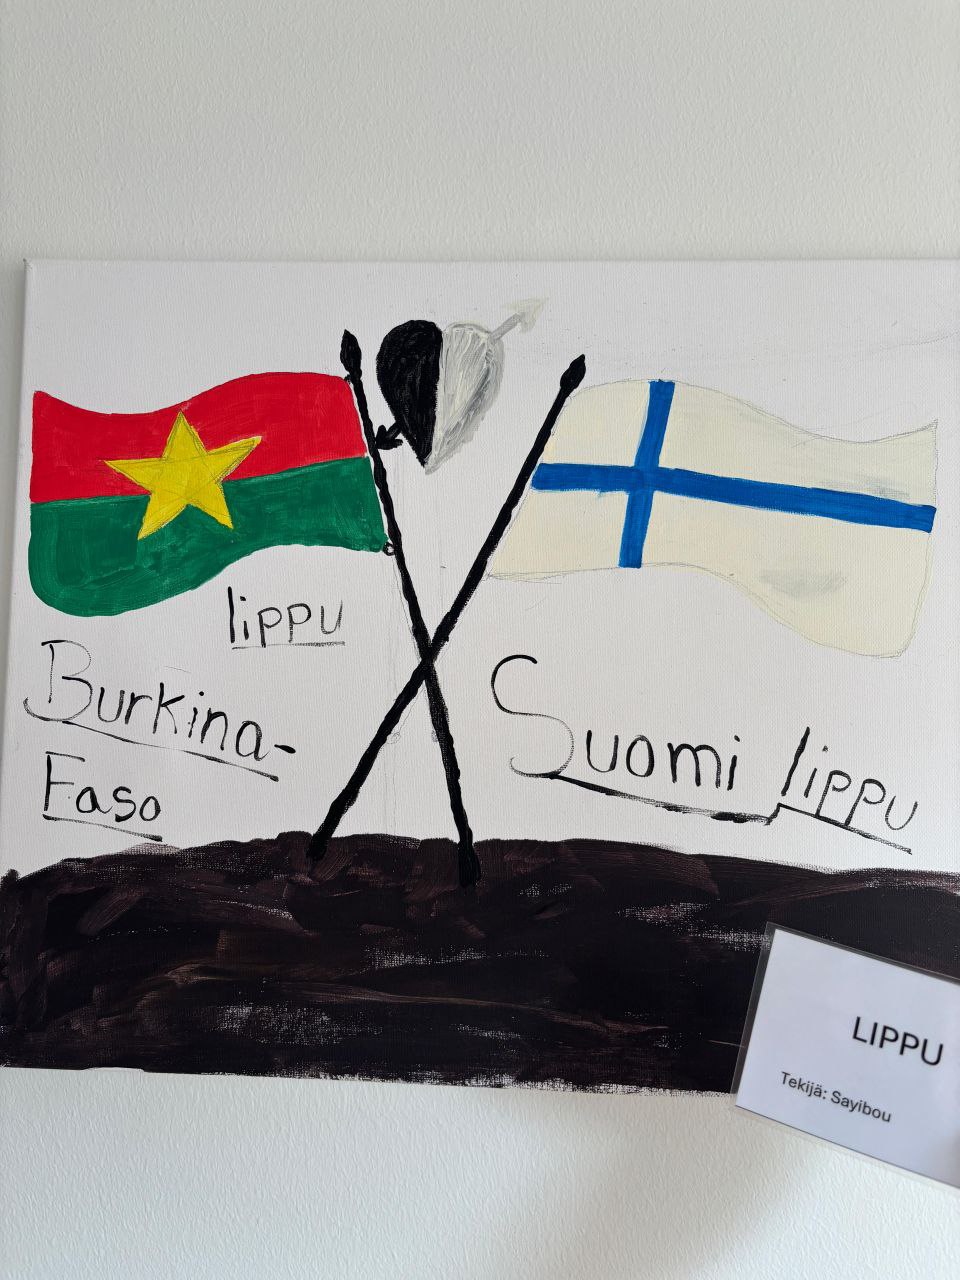 lippu
Burkina-
Faso
Suomi lippu
LIPPU
Tekijä: Sayibou